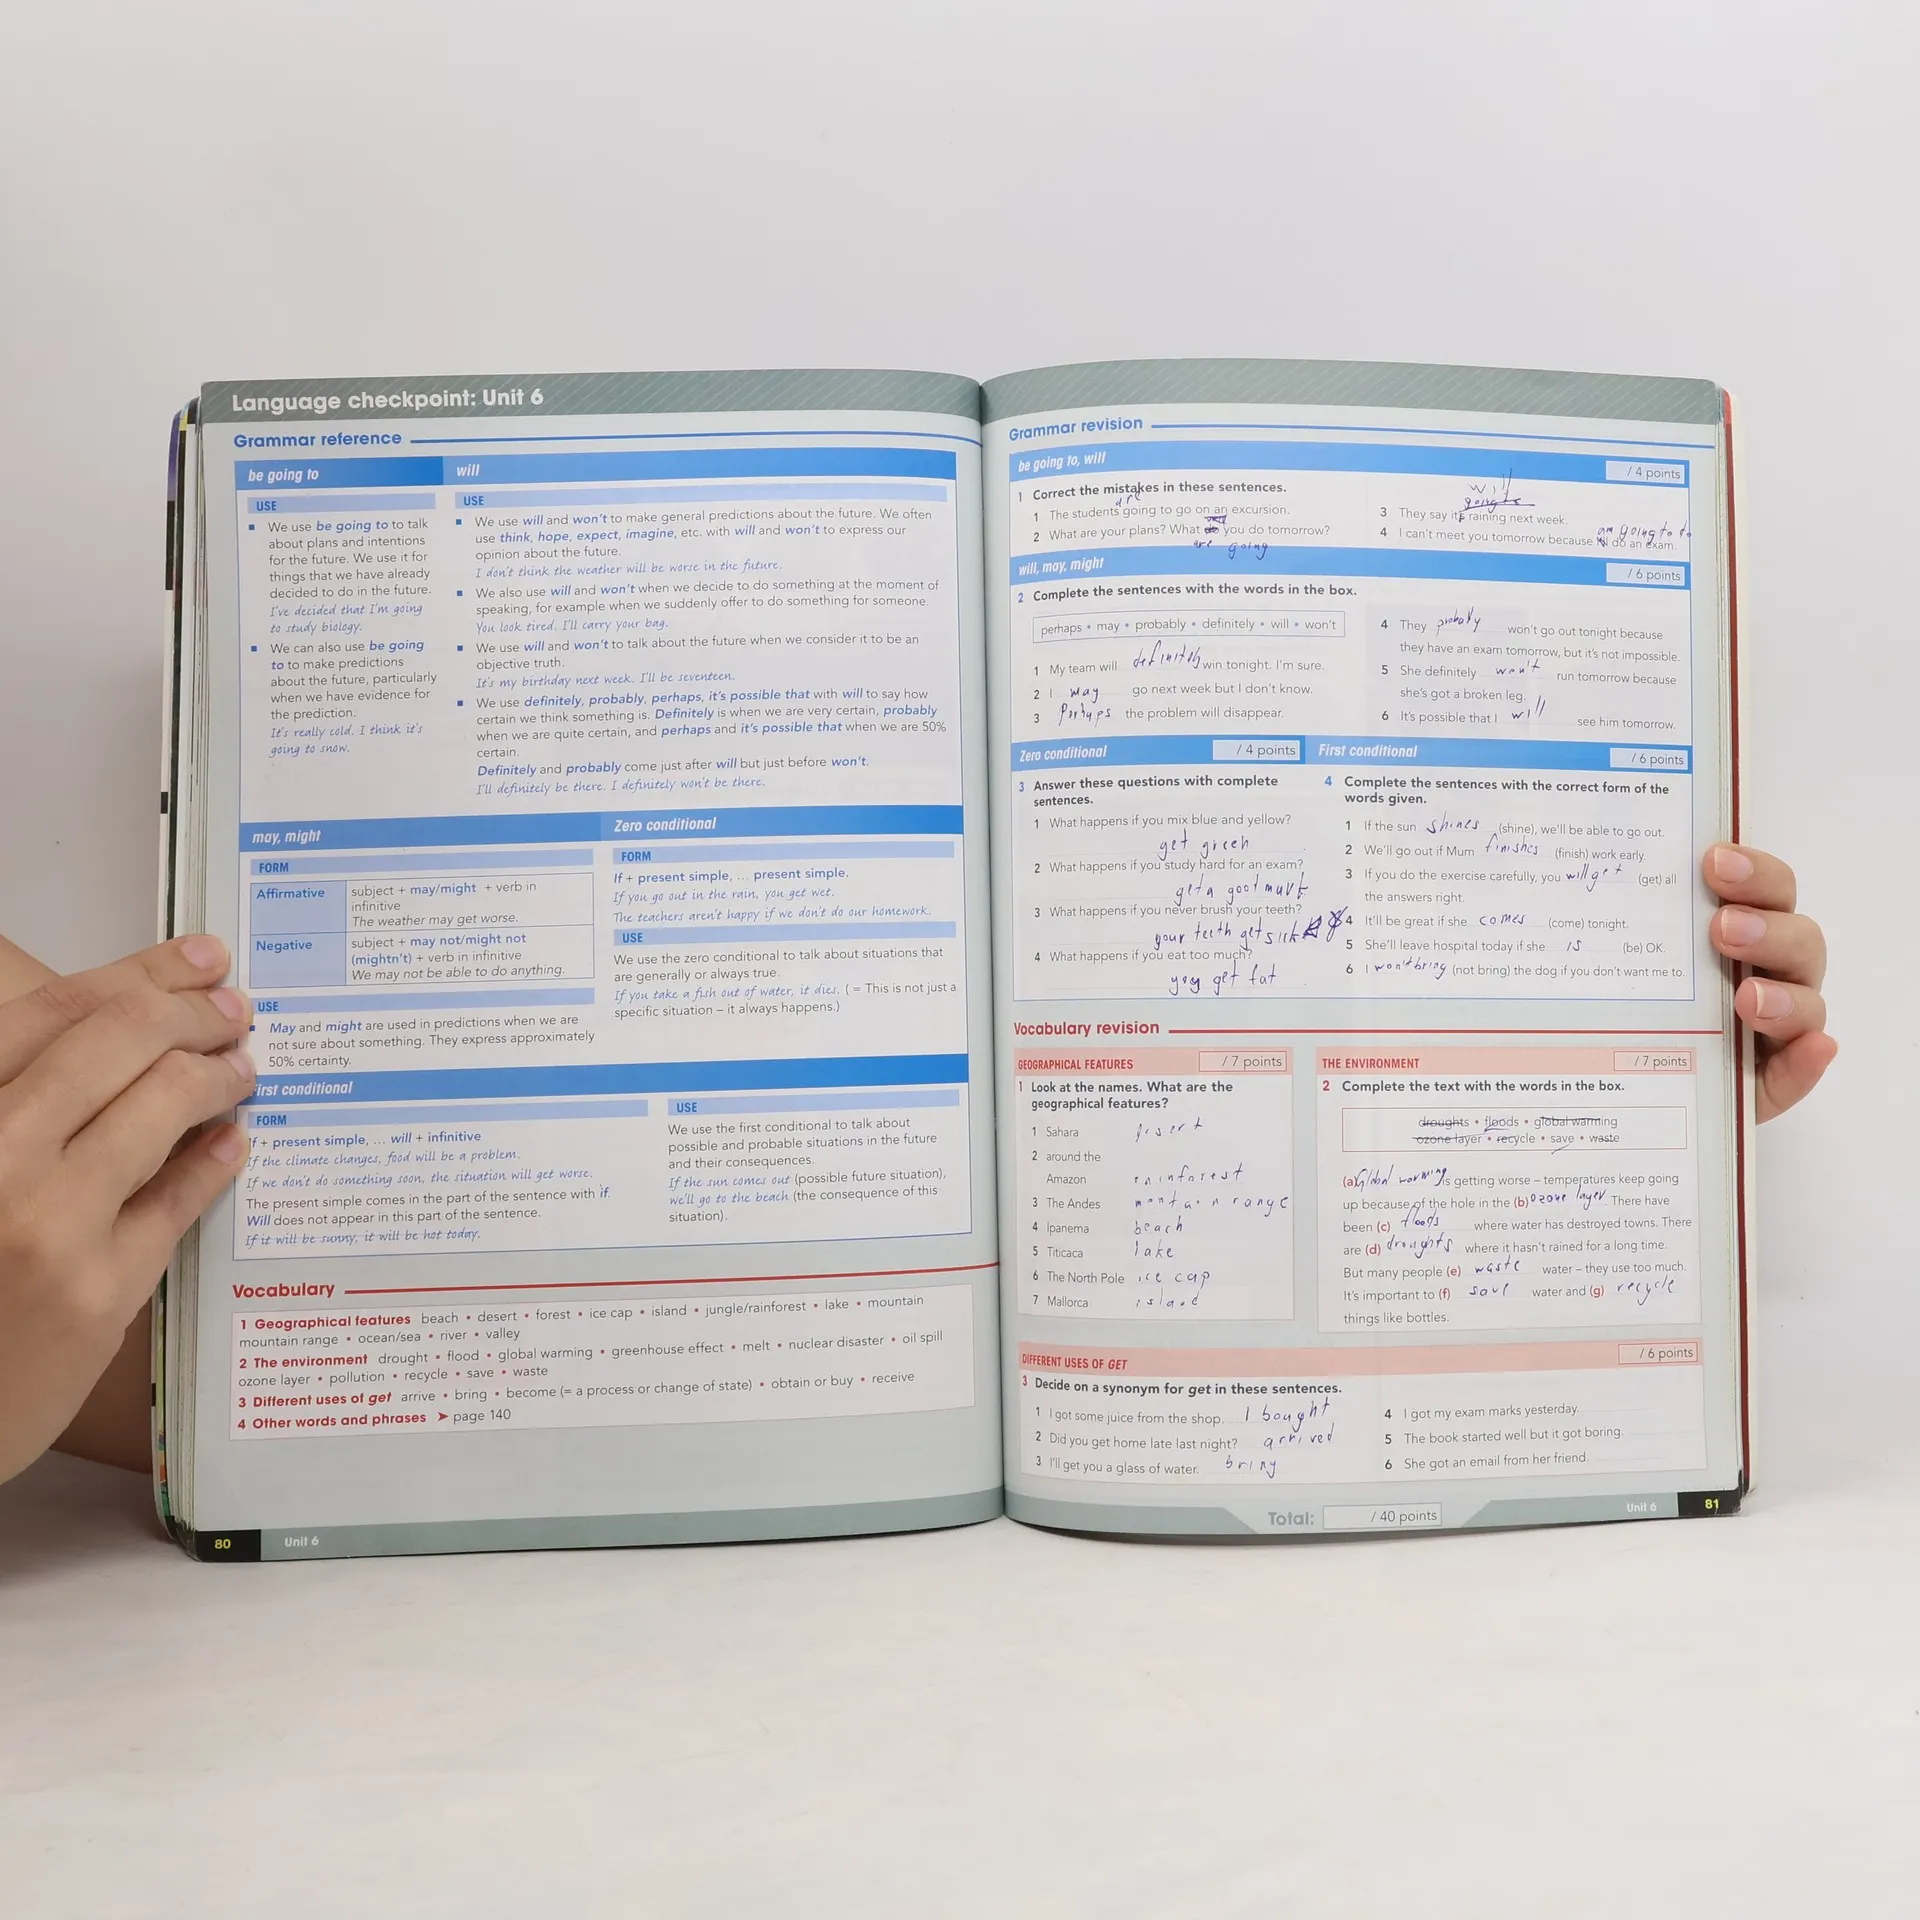 Language checkpoint: Unit 6
Grammar reference
be going to
USE
We use be going to to talk
about plans and intentions
for the future. We use it for
things that we have already
decided to do in the future.
I've decided that I'm going
to study biology.
We can also use be going
to to make predictions
about the future, particularly
when we have evidence for
the prediction.
It's really cold. I think it's
going to snow.
will
USE
We use will and won't to make general predictions about the future. We often
use think, hope, expect, imagine, etc. with will and won't to express our
opinion about the future.
I don't think the weather will be worse in the future.
We also use will and won't when we decide to do something at the moment of
speaking, for example when we suddenly offer to do something for someone.
You look tired. I'll carry your bag.
We use will and won't to talk about the future when we consider it to be an
objective truth.
It's my birthday next week. I'll be seventeen.
We use definitely, probably, perhaps, it's possible that with will to say how
certain we think something is. Definitely is when we are very certain, probably
when we are quite certain, and perhaps and it's possible that when we are 50%
certain.
Definitely and probably come just after will but just before won't.
I'll definitely be there. I definitely won't be there.
may, might
FORM
Affirmative
subject + may/might + verb in
infinitive
The weather may get worse.
Negative
subject + may not/might not
(mightn't) + verb in infinitive
We may not be able to do anything.
USE
May and might are used in predictions when we are
not sure about something. They express approximately
50% certainty.
Zero conditional
FORM
If + present simple, ... present simple.
If you go out in the rain, you get wet.
The teachers aren't happy if we don't do our homework.
USE
We use the zero conditional to talk about situations that
are generally or always true.
If you take a fish out of water, it dies. ( = This is not just a
specific situation – it always happens.)
First conditional
FORM
If + present simple, ... will + infinitive
If the climate changes, food will be a problem.
If we don't do something soon, the situation will get worse.
The present simple comes in the part of the sentence with if.
Will does not appear in this part of the sentence.
If it will be sunny, it will be hot today.
USE
We use the first conditional to talk about
possible and probable situations in the future
and their consequences.
If the sun comes out (possible future situation),
we'll go to the beach (the consequence of this
situation).
Vocabulary
1 Geographical features beach • desert • forest • ice cap • island • jungle/rainforest • lake • mountain
mountain range • ocean/sea • river • valley
2 The environment drought • flood • global warming • greenhouse effect • melt • nuclear disaster • oil spill
ozone layer • pollution • recycle • save • waste
3 Different uses of get arrive • bring • become (= a process or change of state) • obtain or buy • receive
4 Other words and phrases ➤ page 140
80
Unit 6
Grammar revision
be going to, will
/ 4 points
1 Correct the mistakes in these sentences.
are
1 The students going to go on an excursion.
2 What are your plans? What you do tomorrow?
are going
will
going to
3 They say it's raining next week.
am going to do
4 I can't meet you tomorrow because do an exam.
will, may, might
/ 6 points
2 Complete the sentences with the words in the box.
perhaps • may • probably • definitely • will • won't
1 My team will definitely win tonight. I'm sure.
2 I may go next week but I don't know.
3 Perhaps the problem will disappear.
4 They probably won't go out tonight because
they have an exam tomorrow, but it's not impossible.
5 She definitely won't run tomorrow because
she's got a broken leg.
6 It's possible that I will see him tomorrow.
Zero conditional
/ 4 points
3 Answer these questions with complete
sentences.
1 What happens if you mix blue and yellow?
get green
2 What happens if you study hard for an exam?
get a good mark
3 What happens if you never brush your teeth?
your teeth get sick
4 What happens if you eat too much?
you get fat
First conditional
/ 6 points
4 Complete the sentences with the correct form of the
words given.
1 If the sun shines (shine), we'll be able to go out.
2 We'll go out if Mum finishes (finish) work early.
3 If you do the exercise carefully, you will get (get) all
the answers right.
4 It'll be great if she comes (come) tonight.
5 She'll leave hospital today if she is (be) OK.
6 I won't bring (not bring) the dog if you don't want me to.
Vocabulary revision
GEOGRAPHICAL FEATURES
/ 7 points
1 Look at the names. What are the
geographical features?
1 Sahara
2 around the
Amazon
3 The Andes
4 Ipanema beach
5 Titicaca lake
6 The North Pole ice cap
7 Mallorca island
THE ENVIRONMENT
/ 7 points
2 Complete the text with the words in the box.
droughts • floods • global warming
ozone layer • recycle • save • waste
(a) Global warming is getting worse – temperatures keep going
up because of the hole in the (b) ozone layer. There have
been (c) floods where water has destroyed towns. There
are (d) droughts where it hasn't rained for a long time.
But many people (e) waste water – they use too much.
It's important to (f) save water and (g) recycle
things like bottles.
DIFFERENT USES OF GET
/ 6 points
3 Decide on a synonym for get in these sentences.
1 I got some juice from the shop. I bought
2 Did you get home late last night? arrived
3 I'll get you a glass of water. bring
4 I got my exam marks yesterday.
5 The book started well but it got boring.
6 She got an email from her friend.
Total: / 40 points
Unit 6
81